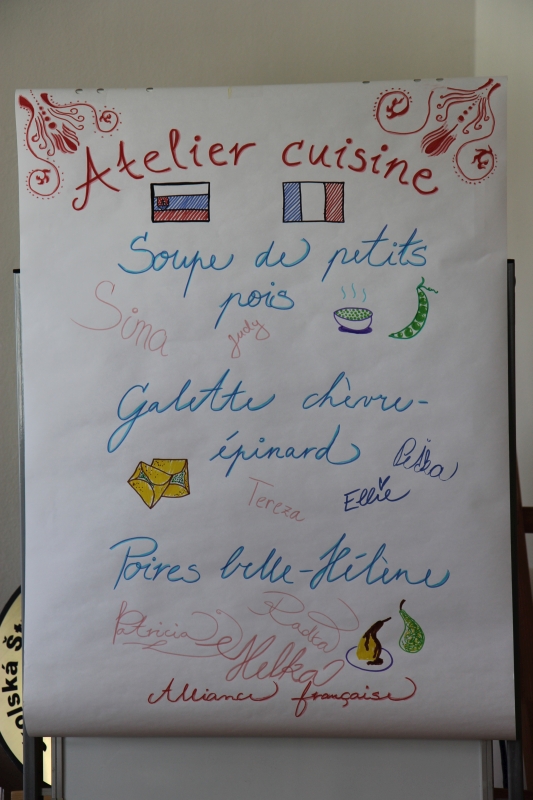 Atelier cuisine
Soupe de petits
pois
Sima
Judy
Galette chèvre-
épinard
Peťka
Tereza
Ellie
Poires belle-Hélène
Radka
Patricia
Helka
Alliance française